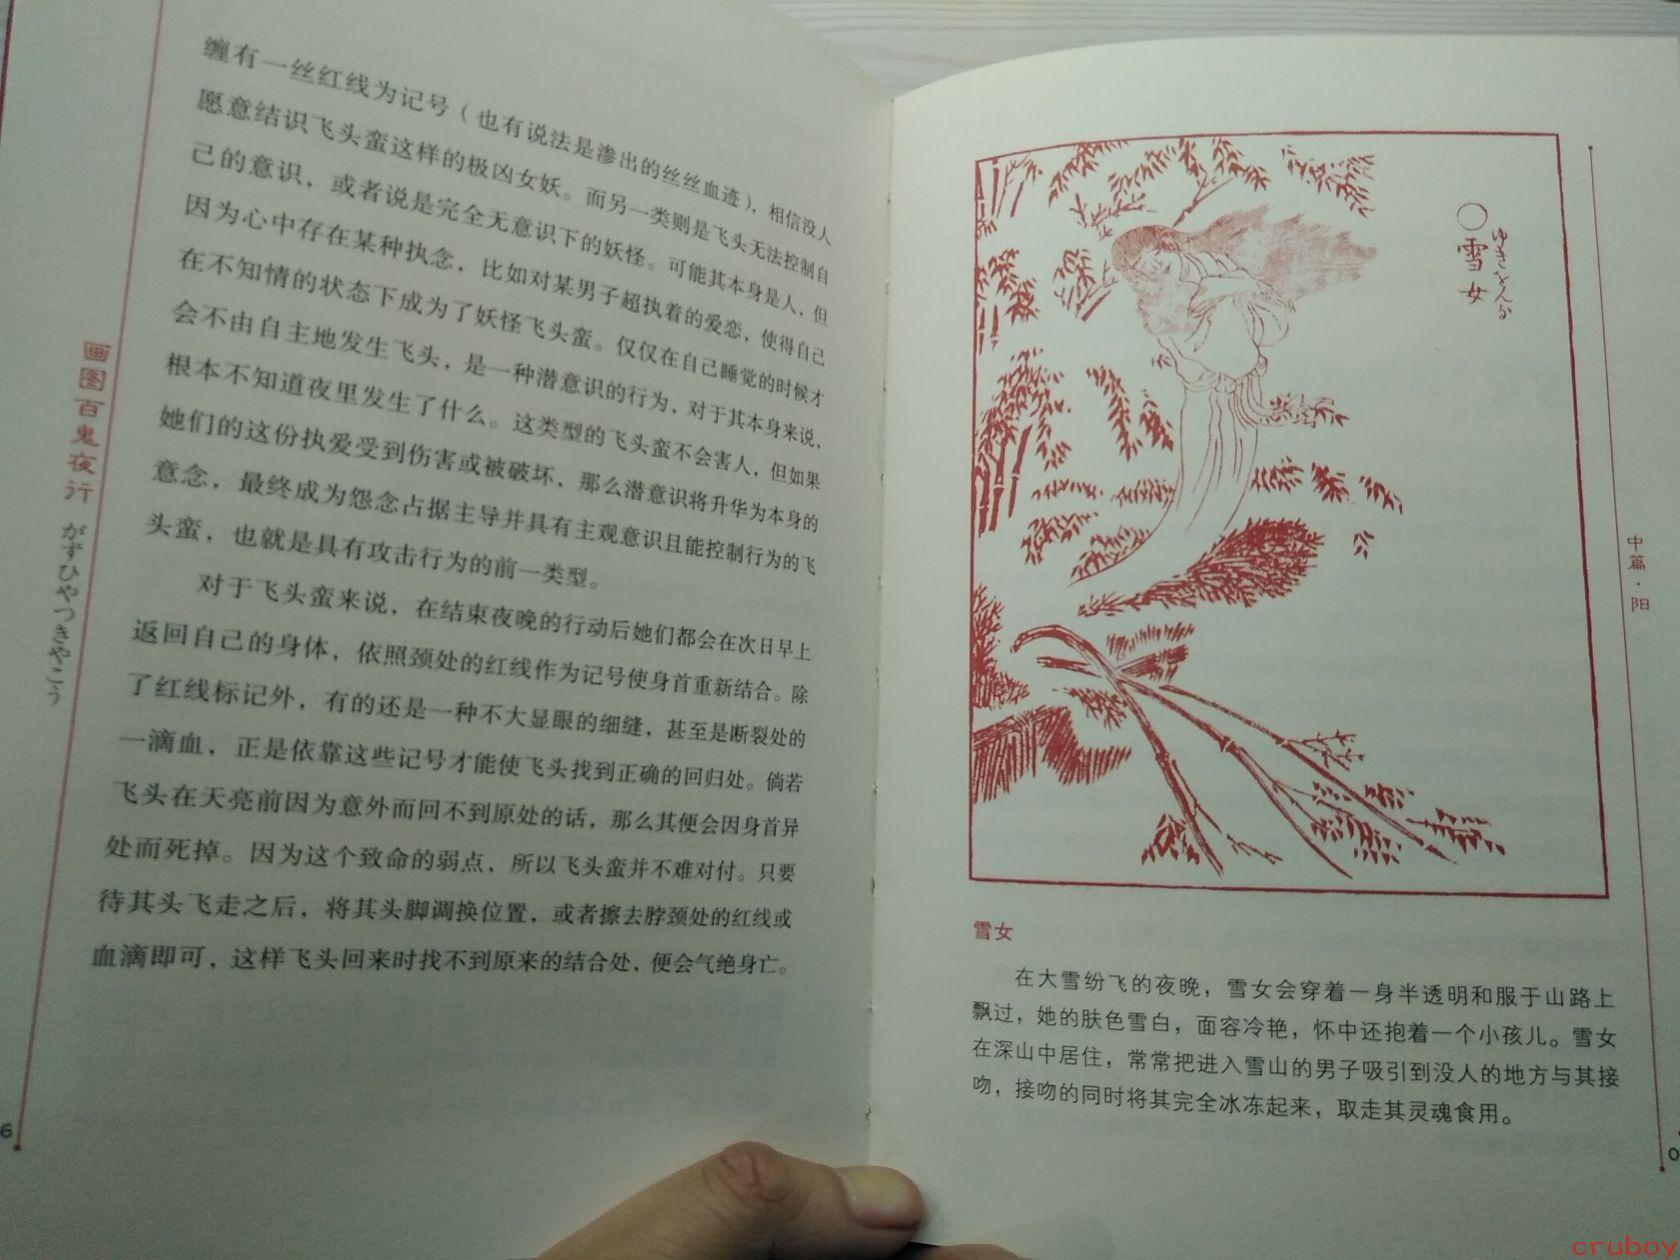 缠有一丝红线为记号（也有说法是渗出的丝丝血迹），相信没人
愿意结识飞头蛮这样的极凶女妖。而另一类则是飞头无法控制自
己的意识，或者说是完全无意识下的妖怪。可能其本身是人，但
因为心中存在某种执念，比如对某男子超执着的爱恋，使得自己
在不知情的状态下成为了妖怪飞头蛮。仅仅在自己睡觉的时候才
会不由自主地发生飞头，是一种潜意识的行为，对于其本身来说，
根本不知道夜里发生了什么。这类型的飞头蛮不会害人，但如果
她们的这份执爱受到伤害或被破坏，那么潜意识将升华为本身的
意念，最终成为怨念占据主导并具有主观意识且能控制行为的飞
头蛮，也就是具有攻击行为的前一类型。
对于飞头蛮来说，在结束夜晚的行动后她们都会在次日早上
返回自己的身体，依照颈处的红线作为记号使身首重新结合。除
了红线标记外，有的还是一种不大显眼的细缝，甚至是断裂处的
一滴血，正是依靠这些记号才能使飞头找到正确的回归处。倘若
飞头在天亮前因为意外而回不到原处的话，那么其便会因身首异
处而死掉。因为这个致命的弱点，所以飞头蛮并不难对付。只要
待其头飞走之后，将其头脚调换位置，或者擦去脖颈处的红线或
血滴即可，这样飞头回来时找不到原来的结合处，便会气绝身亡。
画图百鬼夜行 がずひやつきやこう
6
○雪女
ゆきをんな
雪女
在大雪纷飞的夜晚，雪女会穿着一身半透明和服于山路上
飘过，她的肤色雪白，面容冷艳，怀中还抱着一个小孩儿。雪女
在深山中居住，常常把进入雪山的男子吸引到没人的地方与其接
吻，接吻的同时将其完全冰冻起来，取走其灵魂食用。
中篇·阳
0
cruboy